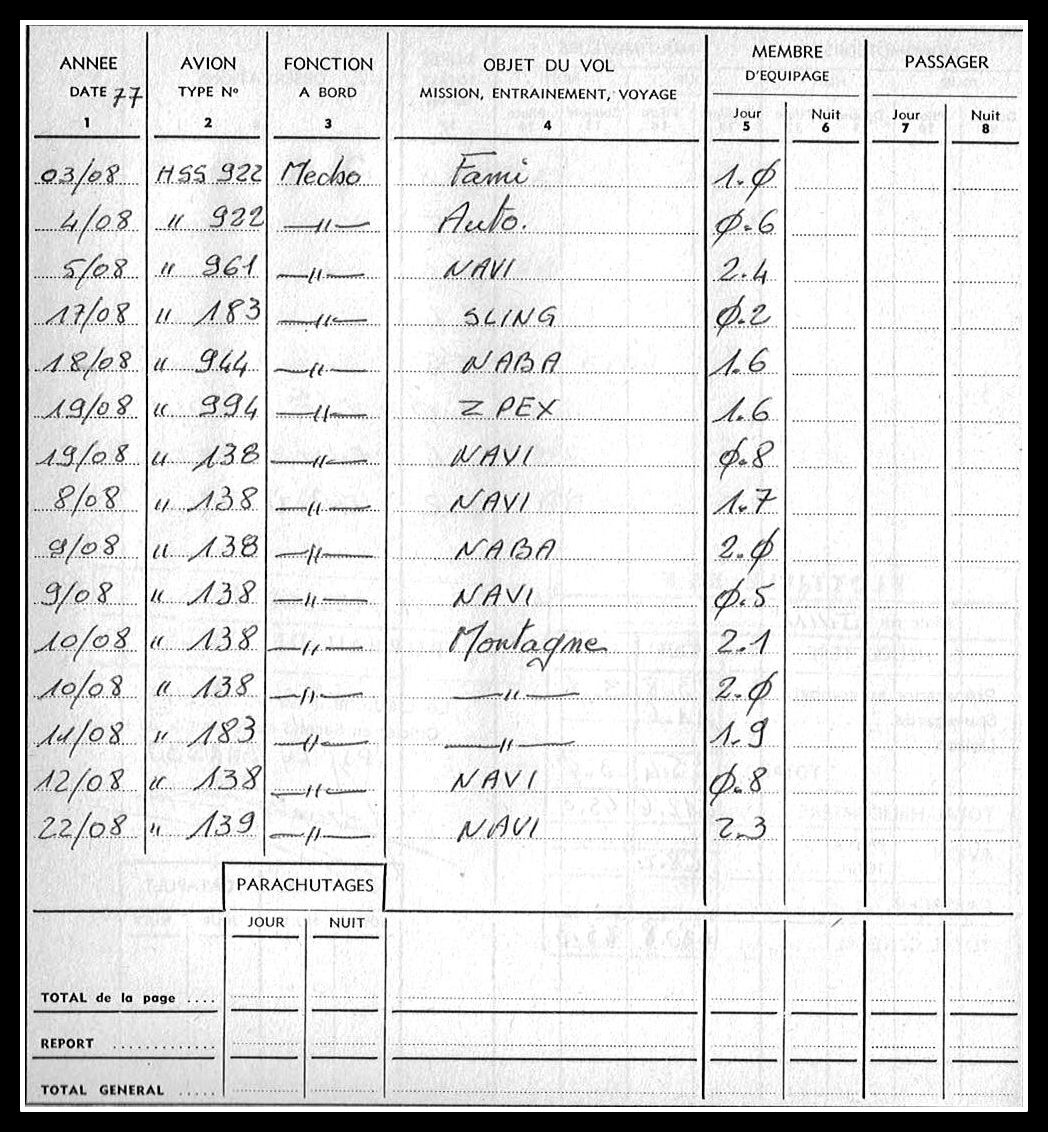 ANNEE AVION FONCTION OBJET DU VOL MEMBRE D'EQUIPAGE PASSAGER
DATE 77 TYPE Nº A BORD MISSION, ENTRAINEMENT, VOYAGE Jour Nuit Jour Nuit
1 2 3 4 5 6 7 8
03/08 HSS 922 Mecbo Fami 1.Ø
4/08 " 922 —"— Auto. Ø.6
5/08 " 961 —"— NAVI 2.4
17/08 " 183 —"— SLING Ø.2
18/08 " 944 —"— NABA 1.6
19/08 " 994 —"— Z PEX 1.6
19/08 " 138 —"— NAVI Ø.8
8/08 " 138 —"— NAVI 1.7
9/08 " 138 —"— NABA 2.Ø
9/08 " 138 —"— NAVI Ø.5
10/08 " 138 —"— Montagne 2.1
10/08 " 138 —"— —"— 2.Ø
11/08 " 183 —"— —"— 1.9
12/08 " 138 —"— NAVI Ø.8
22/08 " 139 —"— NAVI 2.3
PARACHUTAGES
JOUR NUIT
TOTAL de la page ....
REPORT .............
TOTAL GENERAL .....